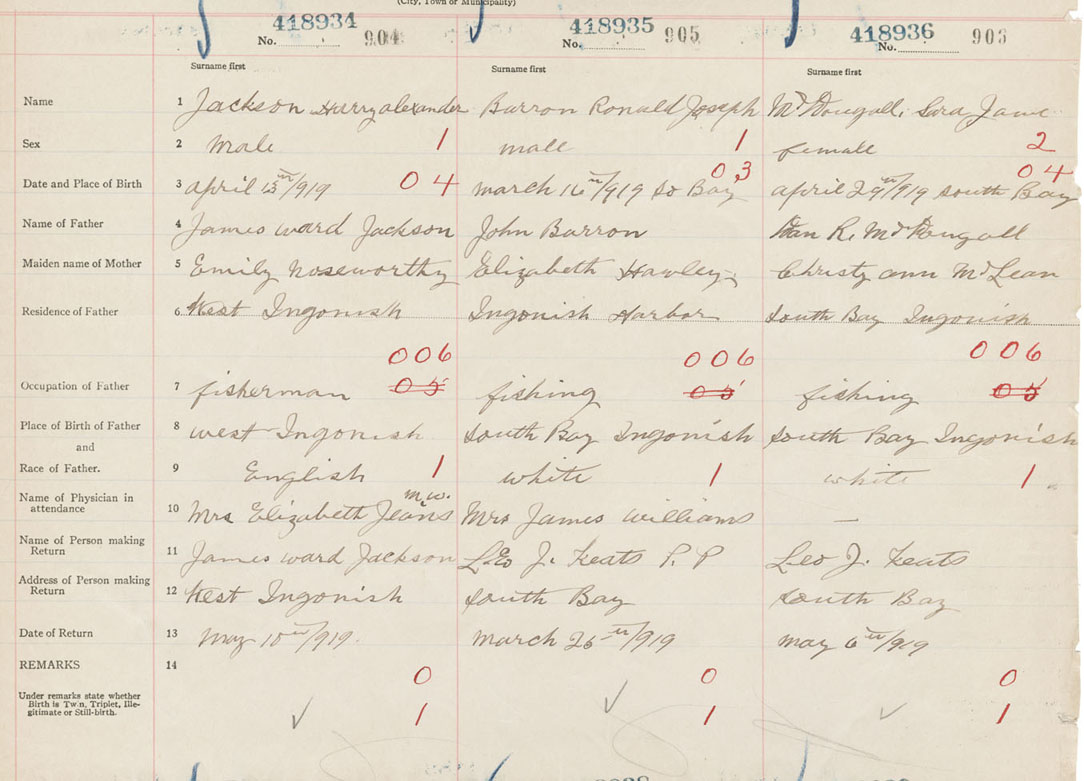 (City, Town or Municipality)
418934 418935 418936
No. 904 No. 905 No. 903
Surname first Surname first Surname first
Name 1 Jackson Harry alexander Barron Ronald Joseph McDougall, Sara Jane
Sex 2 Male 1 male 1 female 2
04 03 04
Date and Place of Birth 3 april 13th/919 march 16th/919 So Bay april 29th/919 South Bay
Name of Father 4 James ward Jackson John Barron Dan R. McDougall
Maiden name of Mother 5 Emily Noseworthy Elizabeth Hawley Christy ann McLean
Residence of Father 6 West Ingonish Ingonish Harbor South Bay Ingonish
006 006 006
Occupation of Father 7 fisherman 05 fishing 05 fishing 05
Place of Birth of Father 8 west Ingonish South Bay Ingonish South Bay Ingonish
and
Race of Father. 9 English 1 white 1 white 1
Name of Physician in
attendance 10 Mrs Elizabeth Jeans m.w. Mrs James Williams —
Name of Person making
Return 11 James ward Jackson Leo J. Keats P. P Leo J. Keats
Address of Person making
Return 12 West Ingonish South Bay South Bay
Date of Return 13 May 10th/919. march 26th/919 may 6th/919
REMARKS 14
0 0 0
Under remarks state whether
Birth is Twin, Triplet, Ille-
gitimate or Still-birth.
✓ 1 ✓ 1 ✓ 1